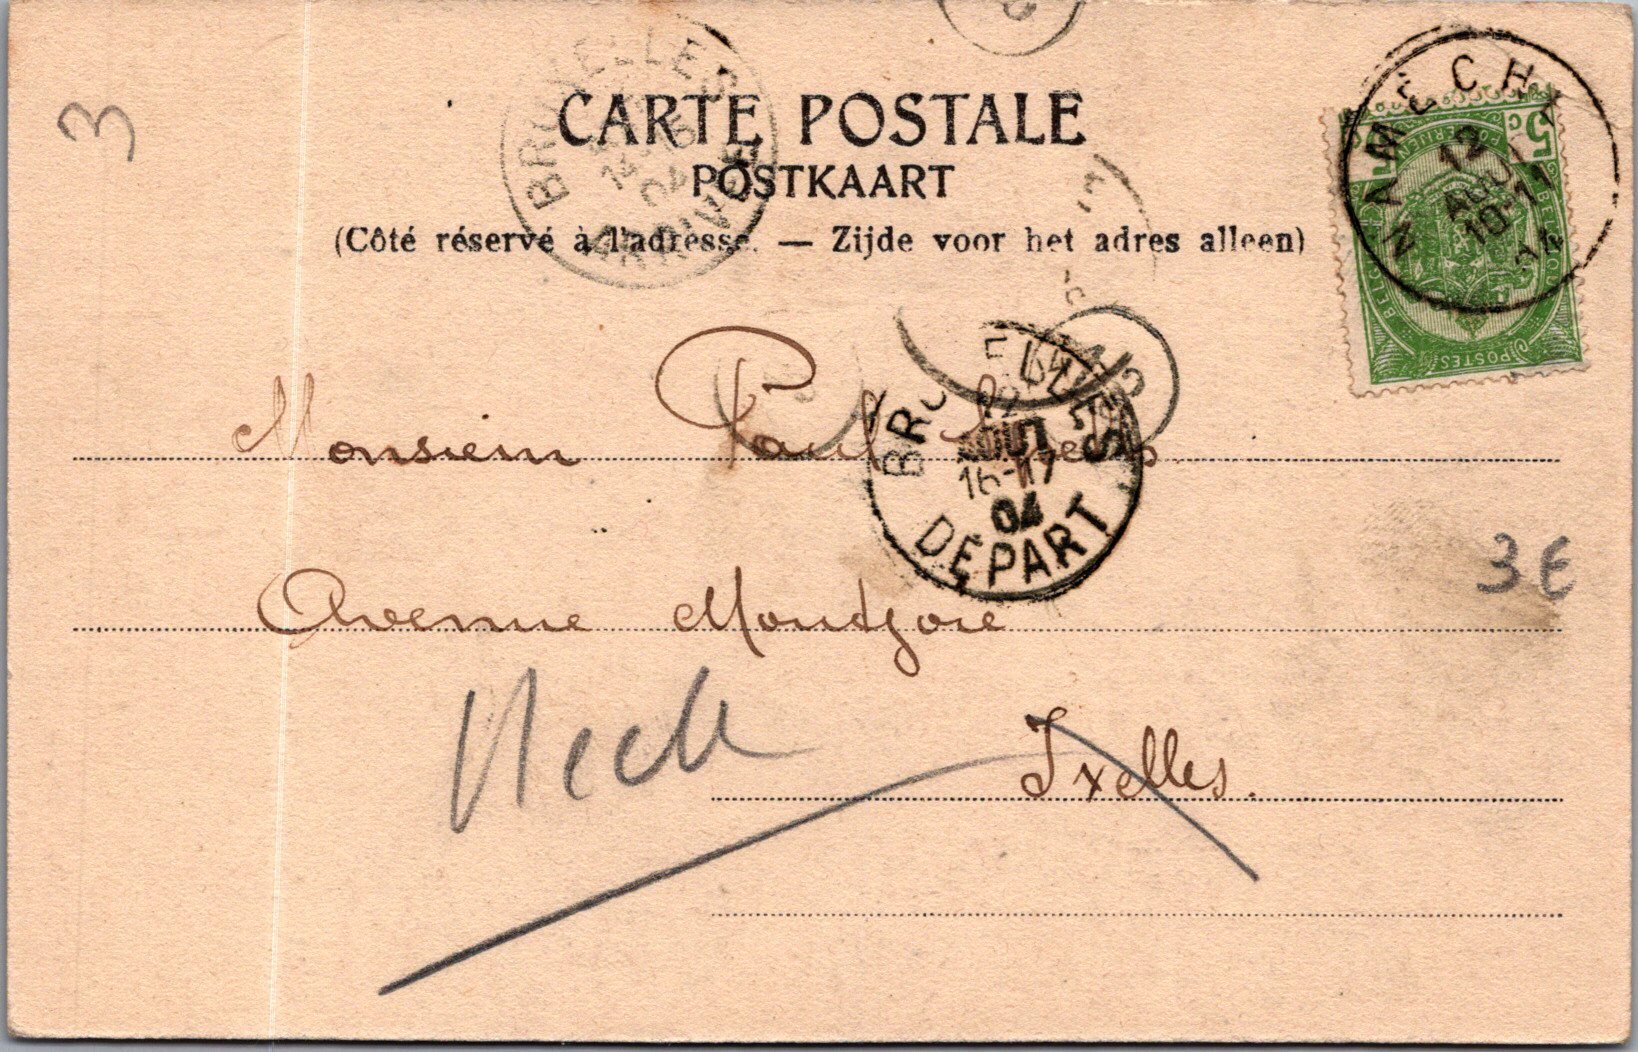 3
CARTE POSTALE
POSTKAART
(Côté réservé à l'adresse. — Zijde voor het adres alleen)
BRUXELLES
ARRIVEE
04
NAMÊCHE
12
AOUT
10-11
04
5 C
POSTES
Monsieur Paul
BRUXELLES
AOUT
16-17
04
DEPART
3 €
Avenue Montjoie
Ixelles.